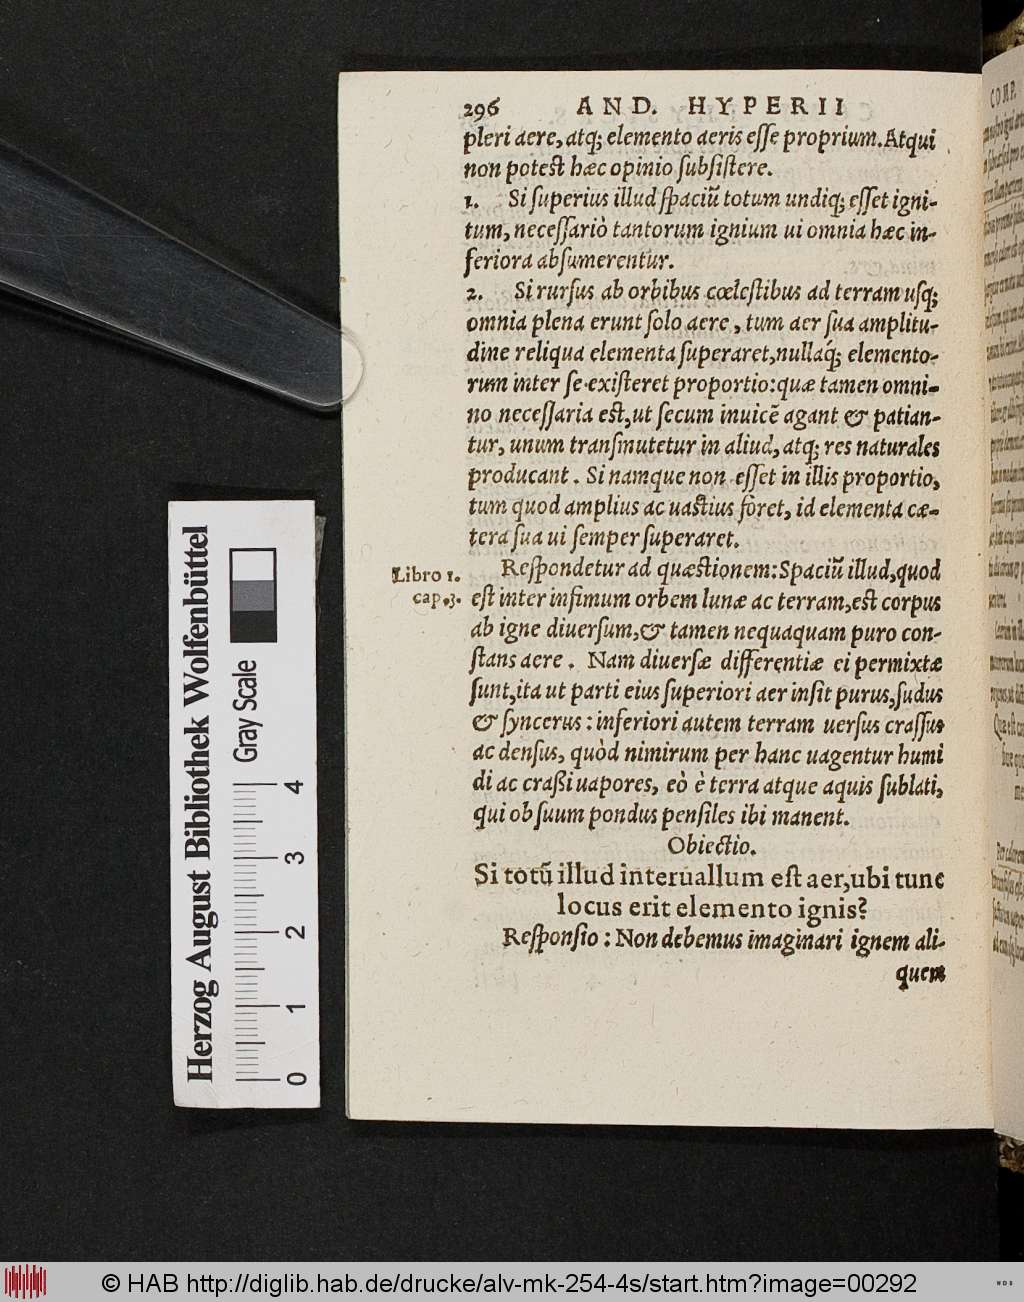 296 AND. HYPERII
pleri aere, atq; elemento aeris eſſe proprium. Atqui
non poteſt hæc opinio ſubſiſtere.
1. Si ſuperius illud ſpaciũ totum undiq; eſſet igni-
tum, neceſſariò tantorum ignium ui omnia hæc in-
feriora abſumerentur.
2. Si rurſus ab orbibus cœleſtibus ad terram uſq;
omnia plena erunt ſolo aere, tum aer ſua amplitu-
dine reliqua elementa ſuperaret, nullaq́; elemento-
rum inter ſe exiſteret proportio: quæ tamen omni-
no neceſſaria eſt, ut ſecum inuicẽ agant & patian-
tur, unum tranſmutetur in aliud, atq; res naturales
producant. Si namque non eſſet in illis proportio,
tum quod amplius ac uaſtius foret, id elementa cæ-
tera ſua ui ſemper ſuperaret.
Libro 1.
cap. 3.
Reſpondetur ad quæſtionem: Spaciũ illud, quod
eſt inter infimum orbem lunæ ac terram, eſt corpus
ab igne diuerſum, & tamen nequaquam puro con-
ſtans aere. Nam diuerſæ differentiæ ei permixtæ
ſunt, ita ut parti eius ſuperiori aer inſit purus, ſudus
& ſyncerus: inferiori autem terram uerſus craſſus
ac denſus, quòd nimirum per hanc uagentur humi
di ac craßi uapores, eò è terra atque aquis ſublati,
qui ob ſuum pondus penſiles ibi manent.
Obiectio.
Si totũ illud interuallum eſt aer, ubi tunc
locus erit elemento ignis?
Reſponſio: Non debemus imaginari ignem ali-
quem
Herzog August Bibliothek Wolfenbüttel
Gray Scale
0 1 2 3 4
© HAB http://diglib.hab.de/drucke/alv-mk-254-4s/start.htm?image=00292